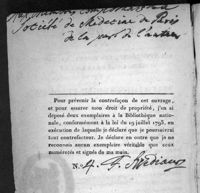 Société de Médecine de Paris
de la part de l'auteur
Pour prévenir la contrefaçon de cet ouvrage,
et pour assurer mon droit de propriété, j'en ai
déposé deux exemplaires à la Bibliothèque natio-
nale, conformément à la loi du 19 juillet 1793, en
exécution de laquelle je déclare que je poursuivrai
tout contrefacteur. Je déclare en outre que je ne
reconnois aucun exemplaire véritable que ceux
numérotés et signés de ma main.
N.°